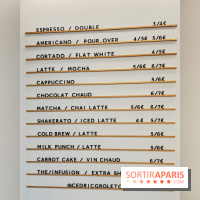 ESPRESSO / DOUBLE 3/4€
AMERICANO / POUR OVER 4/5€ 5/6€
CORTADO / FLAT WHITE 4/5€
LATTE / MOCHA 5/6€ 6/7€
CAPPUCCINO 5/6€
CHOCOLAT CHAUD 6/7€
MATCHA / CHAI LATTE 5/6€ 6/7€
SHAKERATO / ICED LATTE 4€ 5/7€
COLD BREW / LATTE 5/6€
MILK PUNCH / LATTE 5/6€
CARROT CAKE / VIN CHAUD 6/7€
THE/INFUSION / EXTRA SH
@CEDRICGROLET
SORTIRAPARIS